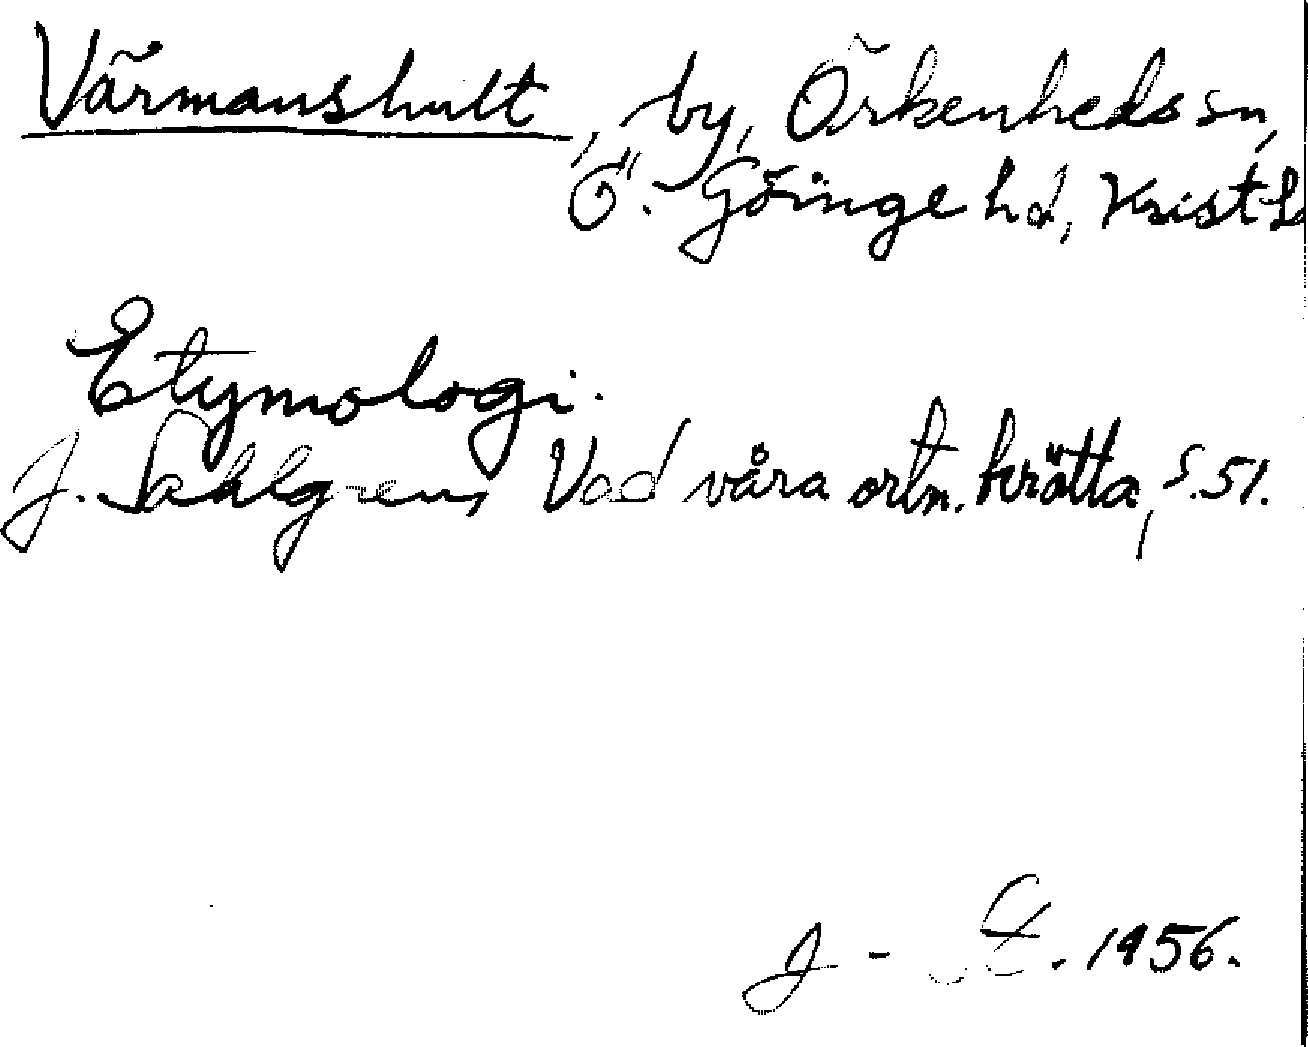 Värmanshult, by, Örkenheds sn,
Ö. Göinge hd, Krist. L
Etymologi.
J. Sahlgren, Vad våra ortn. berätta, s. 51.
J - . 1956.